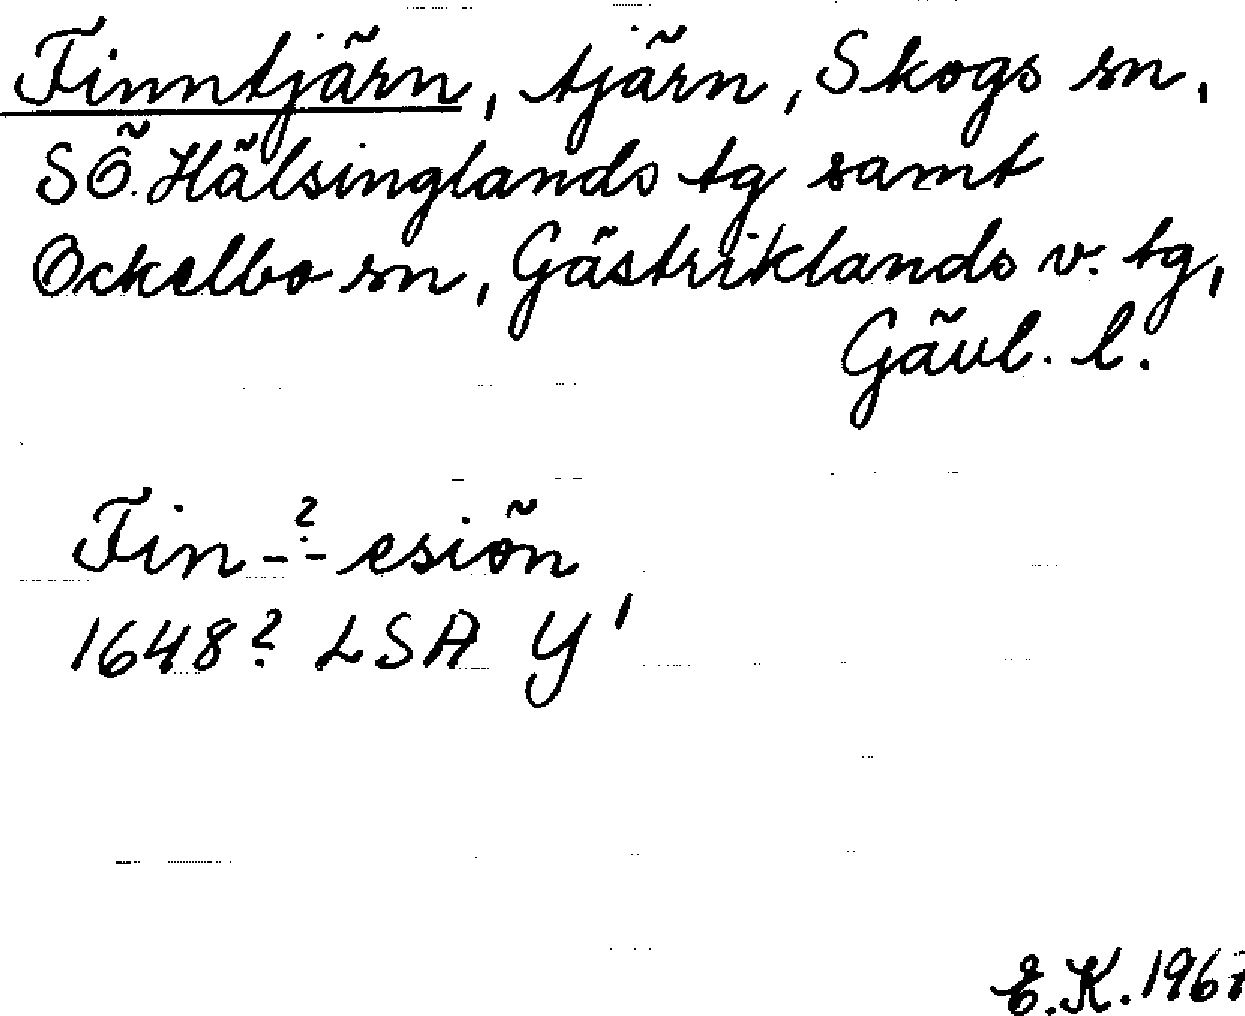 Finntjärn, tjärn, Skogs sn,
SÖ. Hälsinglands tg samt
Ockelbo sn, Gästriklands v. tg,
Gävl. l.
Fin-?-esiön
1648? LSA Y'
E.K. 1961